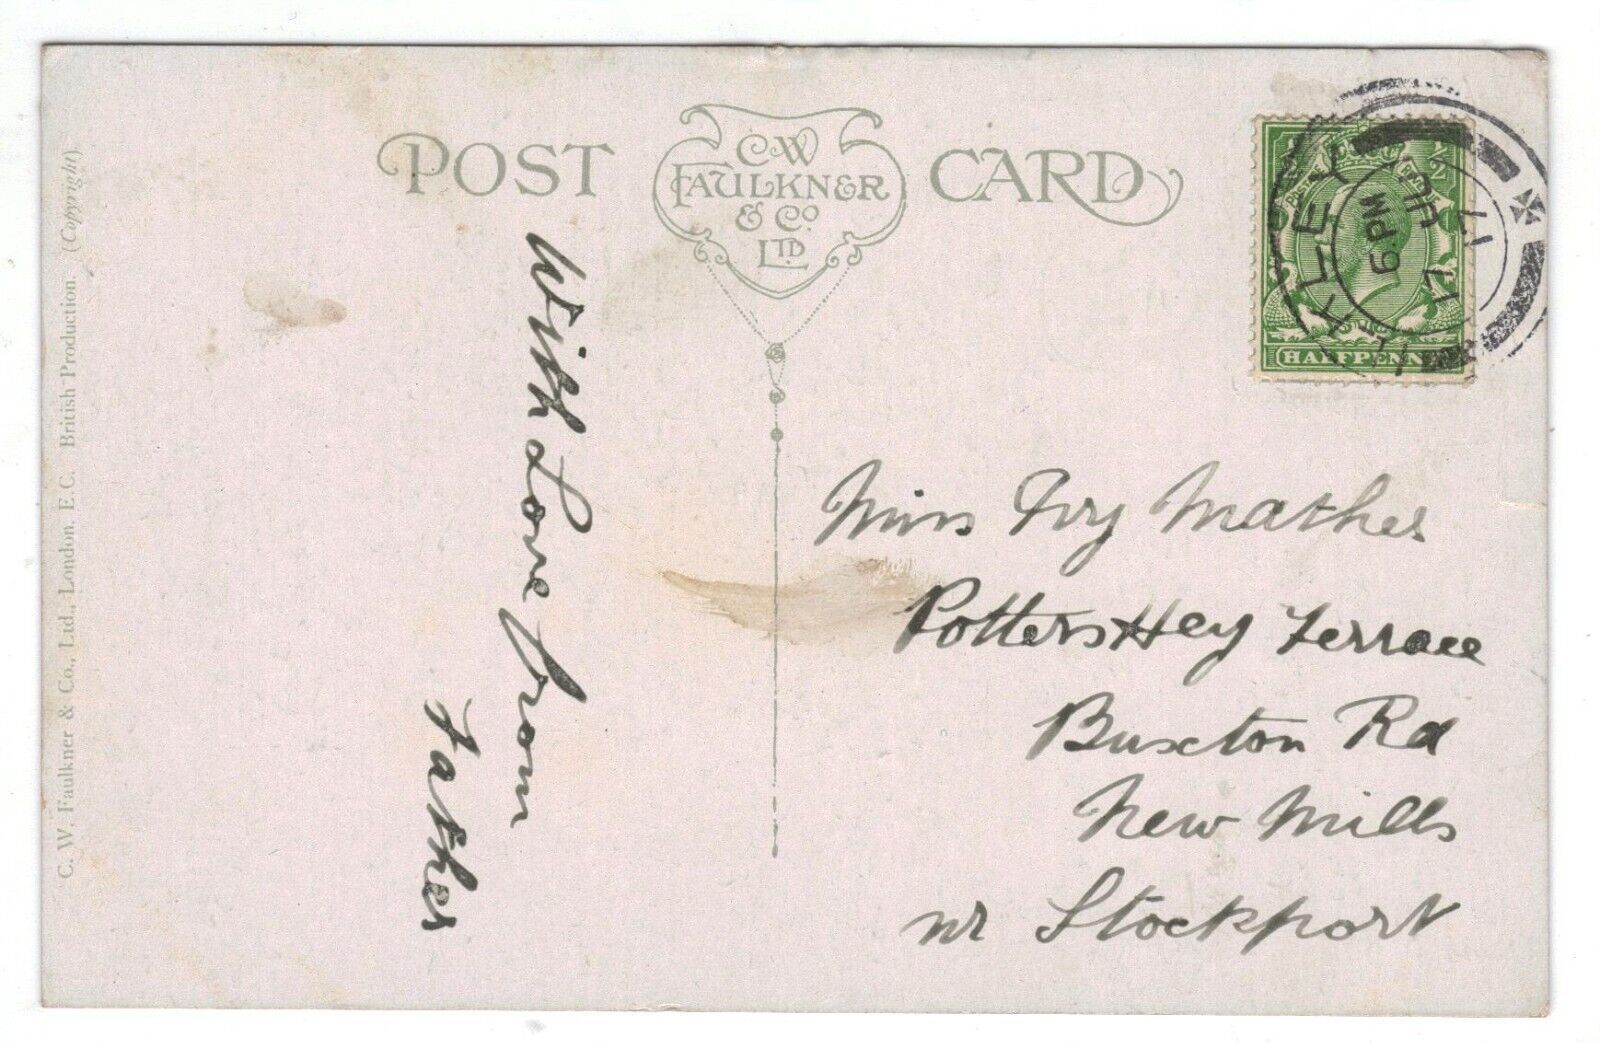 POST CARD
C.W
FAULKNER
& Co.
LTD
C. W. Faulkner & Co., Ltd., London, E.C. British Production (Copyright).
With Love from
Father
1/2
HALFPENN
6.PM
17
Miss Ivy Mather
Potters Hey Terrace
Buxton Rd
New Mills
nr Stockport